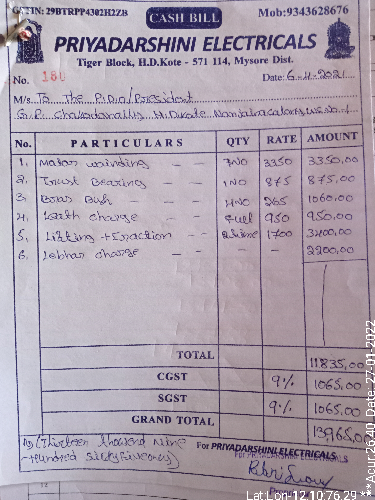 GSTIN: 29BTRPP4302H2ZB CASH BILL Mob:9343628676
PRIYADARSHINI ELECTRICALS
Tiger Block, H.D.Kote - 571 114, Mysore Dist.
No. 180 Date: 6-4-2021
M/s To The P.D.O/President
G.P. Chakodanally H.D.kote
No. PARTICULARS QTY RATE AMOUNT
1. Motor winding - - 1NO 3350 3350,00
2. Trust Bearing - - 1NO 875 875,00
3. Bush - - 4NO 265 1060,00
4. charge - - 950 950,00
5. Lifting + - 1700 3400,00
6. Lebhar charge - - - 2200,00
TOTAL 11835,00
CGST 9% 1065,00
SGST 9% 1065,00
GRAND TOTAL 13,965,00
(Thirteen thousand Nine
-Hundred Sixty Five only)
For PRIYADARSHINI ELECTRICALS
For PRIYADARSHINI ELECTRICALS
Lat Lon-12.10;76.29 ***Acur:26.40 Date: 27-01-2022